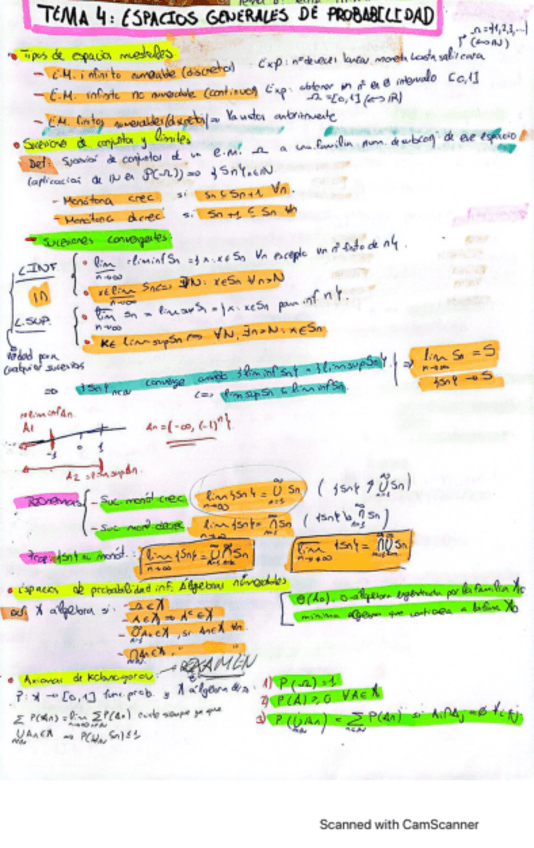 TEMA 4: ESPACIOS GENERALES DE PROBABILIDAD
Ω={1,2,3,...}
• Tipos de espacios muestrales
- E.M. infinito numerable (discretos) Exp: nº de veces lanzar moneda hasta salir cara
- E.M. infinito no numerable (continuos) Exp: obtener un nº en el intervalo [0,1]
Ω=[0,1]
- E.M. finitos numerables/discretos ⇒ Ya vistos anteriormente
• Sucesiones de conjuntos y límites
Def: Sucesión de conjuntos de un e.m. Ω a una familia num. de subconj de ese espacio
(aplicación de ℕ en P(Ω)) ⇒ {Sn}n∈ℕ
- Monótona crec si Sn ⊆ Sn+1 ∀n.
- Monótona decrec si Sn+1 ⊆ Sn ∀n
- Sucesiones convergentes:
L.INF
• lim = liminf Sn = {x: x∈Sn ∀n excepto un nº finito de n}.
n→∞
• x∈lim Sn ⇔ ∃N: x∈Sn ∀n>N
n→∞
L.SUP.
• lim Sn = limsup Sn = {x: x∈Sn para inf n}.
n→∞
• x∈ limsup Sn ⇔ ∀N, ∃n>N: x∈Sn
verdad para
cualquier sucesión
⇒ {Sn}n∈ℕ converge cuando {liminf Sn} = {limsup Sn} ⇒ lim Sn = S
n→∞
⇔ limsup Sn ⊆ liminf Sn. {Sn} → S
A1 An = (-∞, (-1)ⁿ}.
-1 0 1
A2 = limsup An.
Teoremas - Suc monót crec lim {Sn} = ∪ Sn ( {Sn} ↗ ∪ Sn)
- Suc monót decrec lim {Sn} = ∩ Sn ( {Sn} ↘ ∩ Sn)
Prop: {Sn} no monót. lim {Sn} = ∪∩ Sn lim {Sn} = ∩∪ Sn
• Espacios de probabilidad inf. Álgebras numerables
Def X álgebra si: - Ω∈X
- A∈X ⇒ Aᶜ∈X
- ∪An∈X, si An∈X ∀n
- ∩An∈X, "
σ(X0), σ álgebra engendrada por la familia X0
mínima álgebra que contiene a la fam X0
• Axiomas de Kolmogorov → EXAMEN
P: X → [0,1] func. prob. y X álgebra de Ω. 1) P(Ω)=1
2) P(A) ≥ 0 ∀A∈X
3) P(∪An) = ∑ P(An) si Ai∩Aj = ∅ ∀i≠j
∑ P(An) = lim ∑ P(An) existe siempre ya que
∪An∈X ⇒ P(∪ Sn) ≤ 1
Scanned with CamScanner